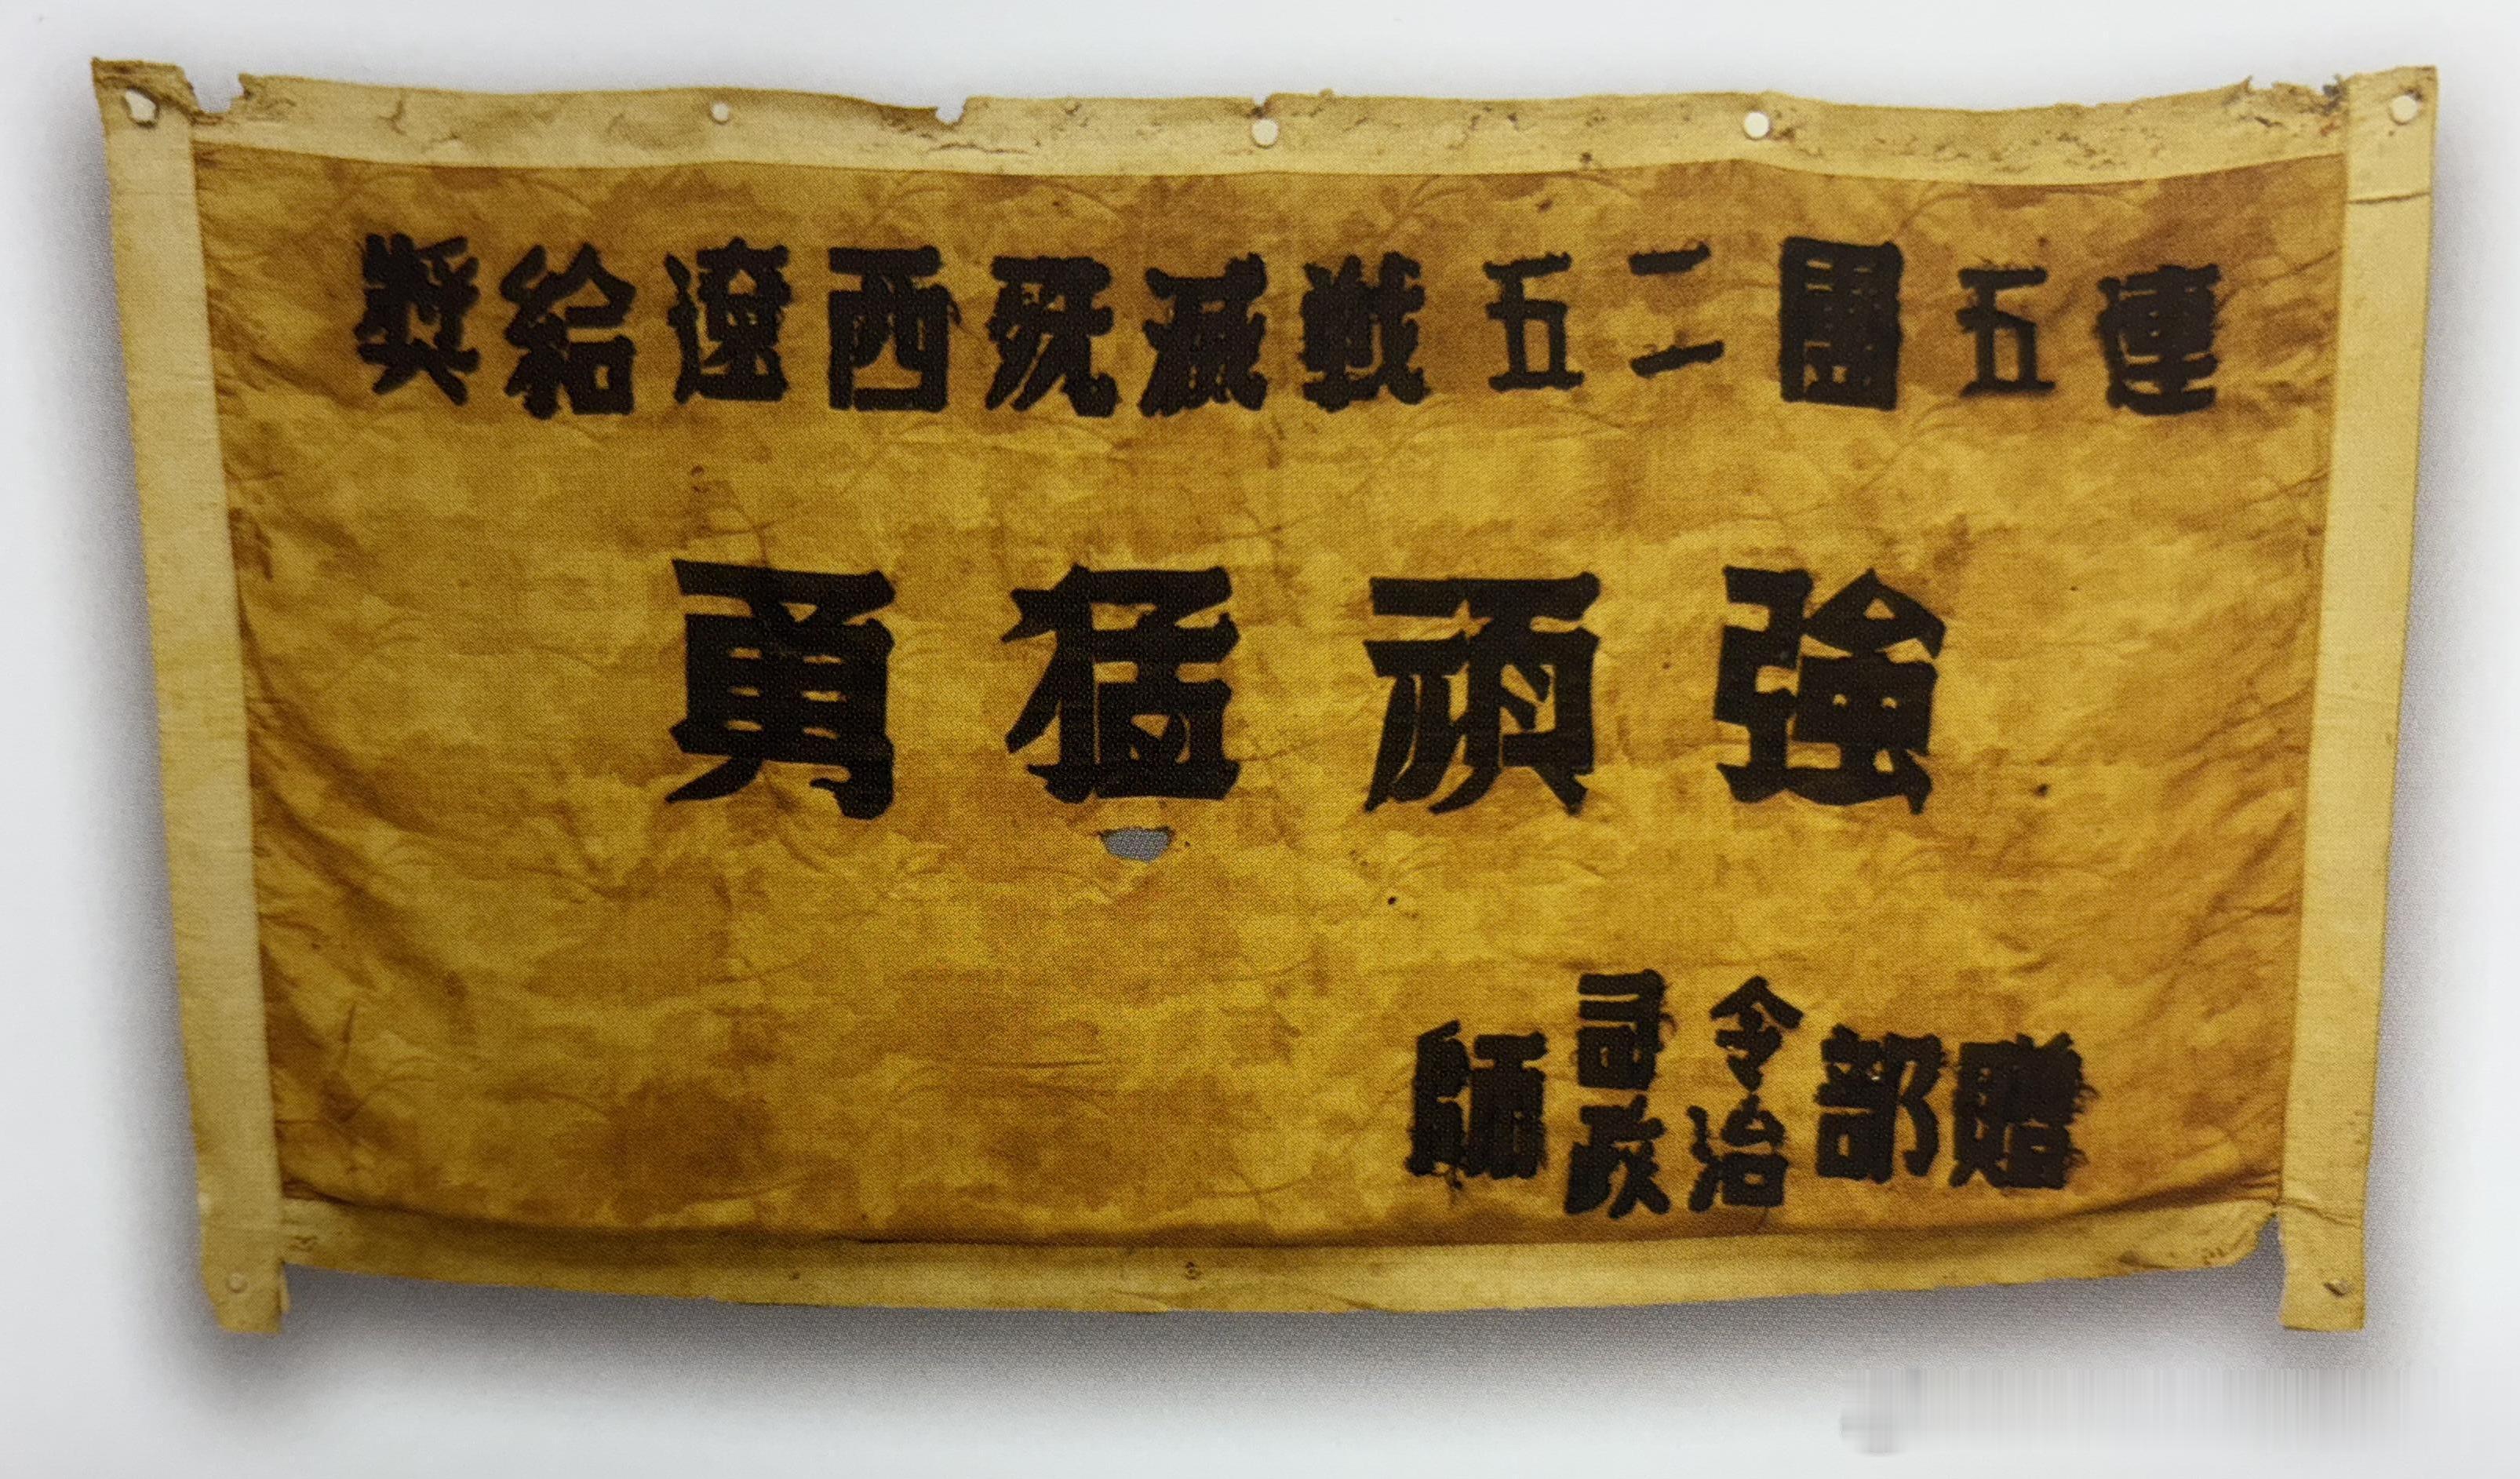 奬給遼西殲滅戰五二團五連
勇猛頑強
師司令政治部贈